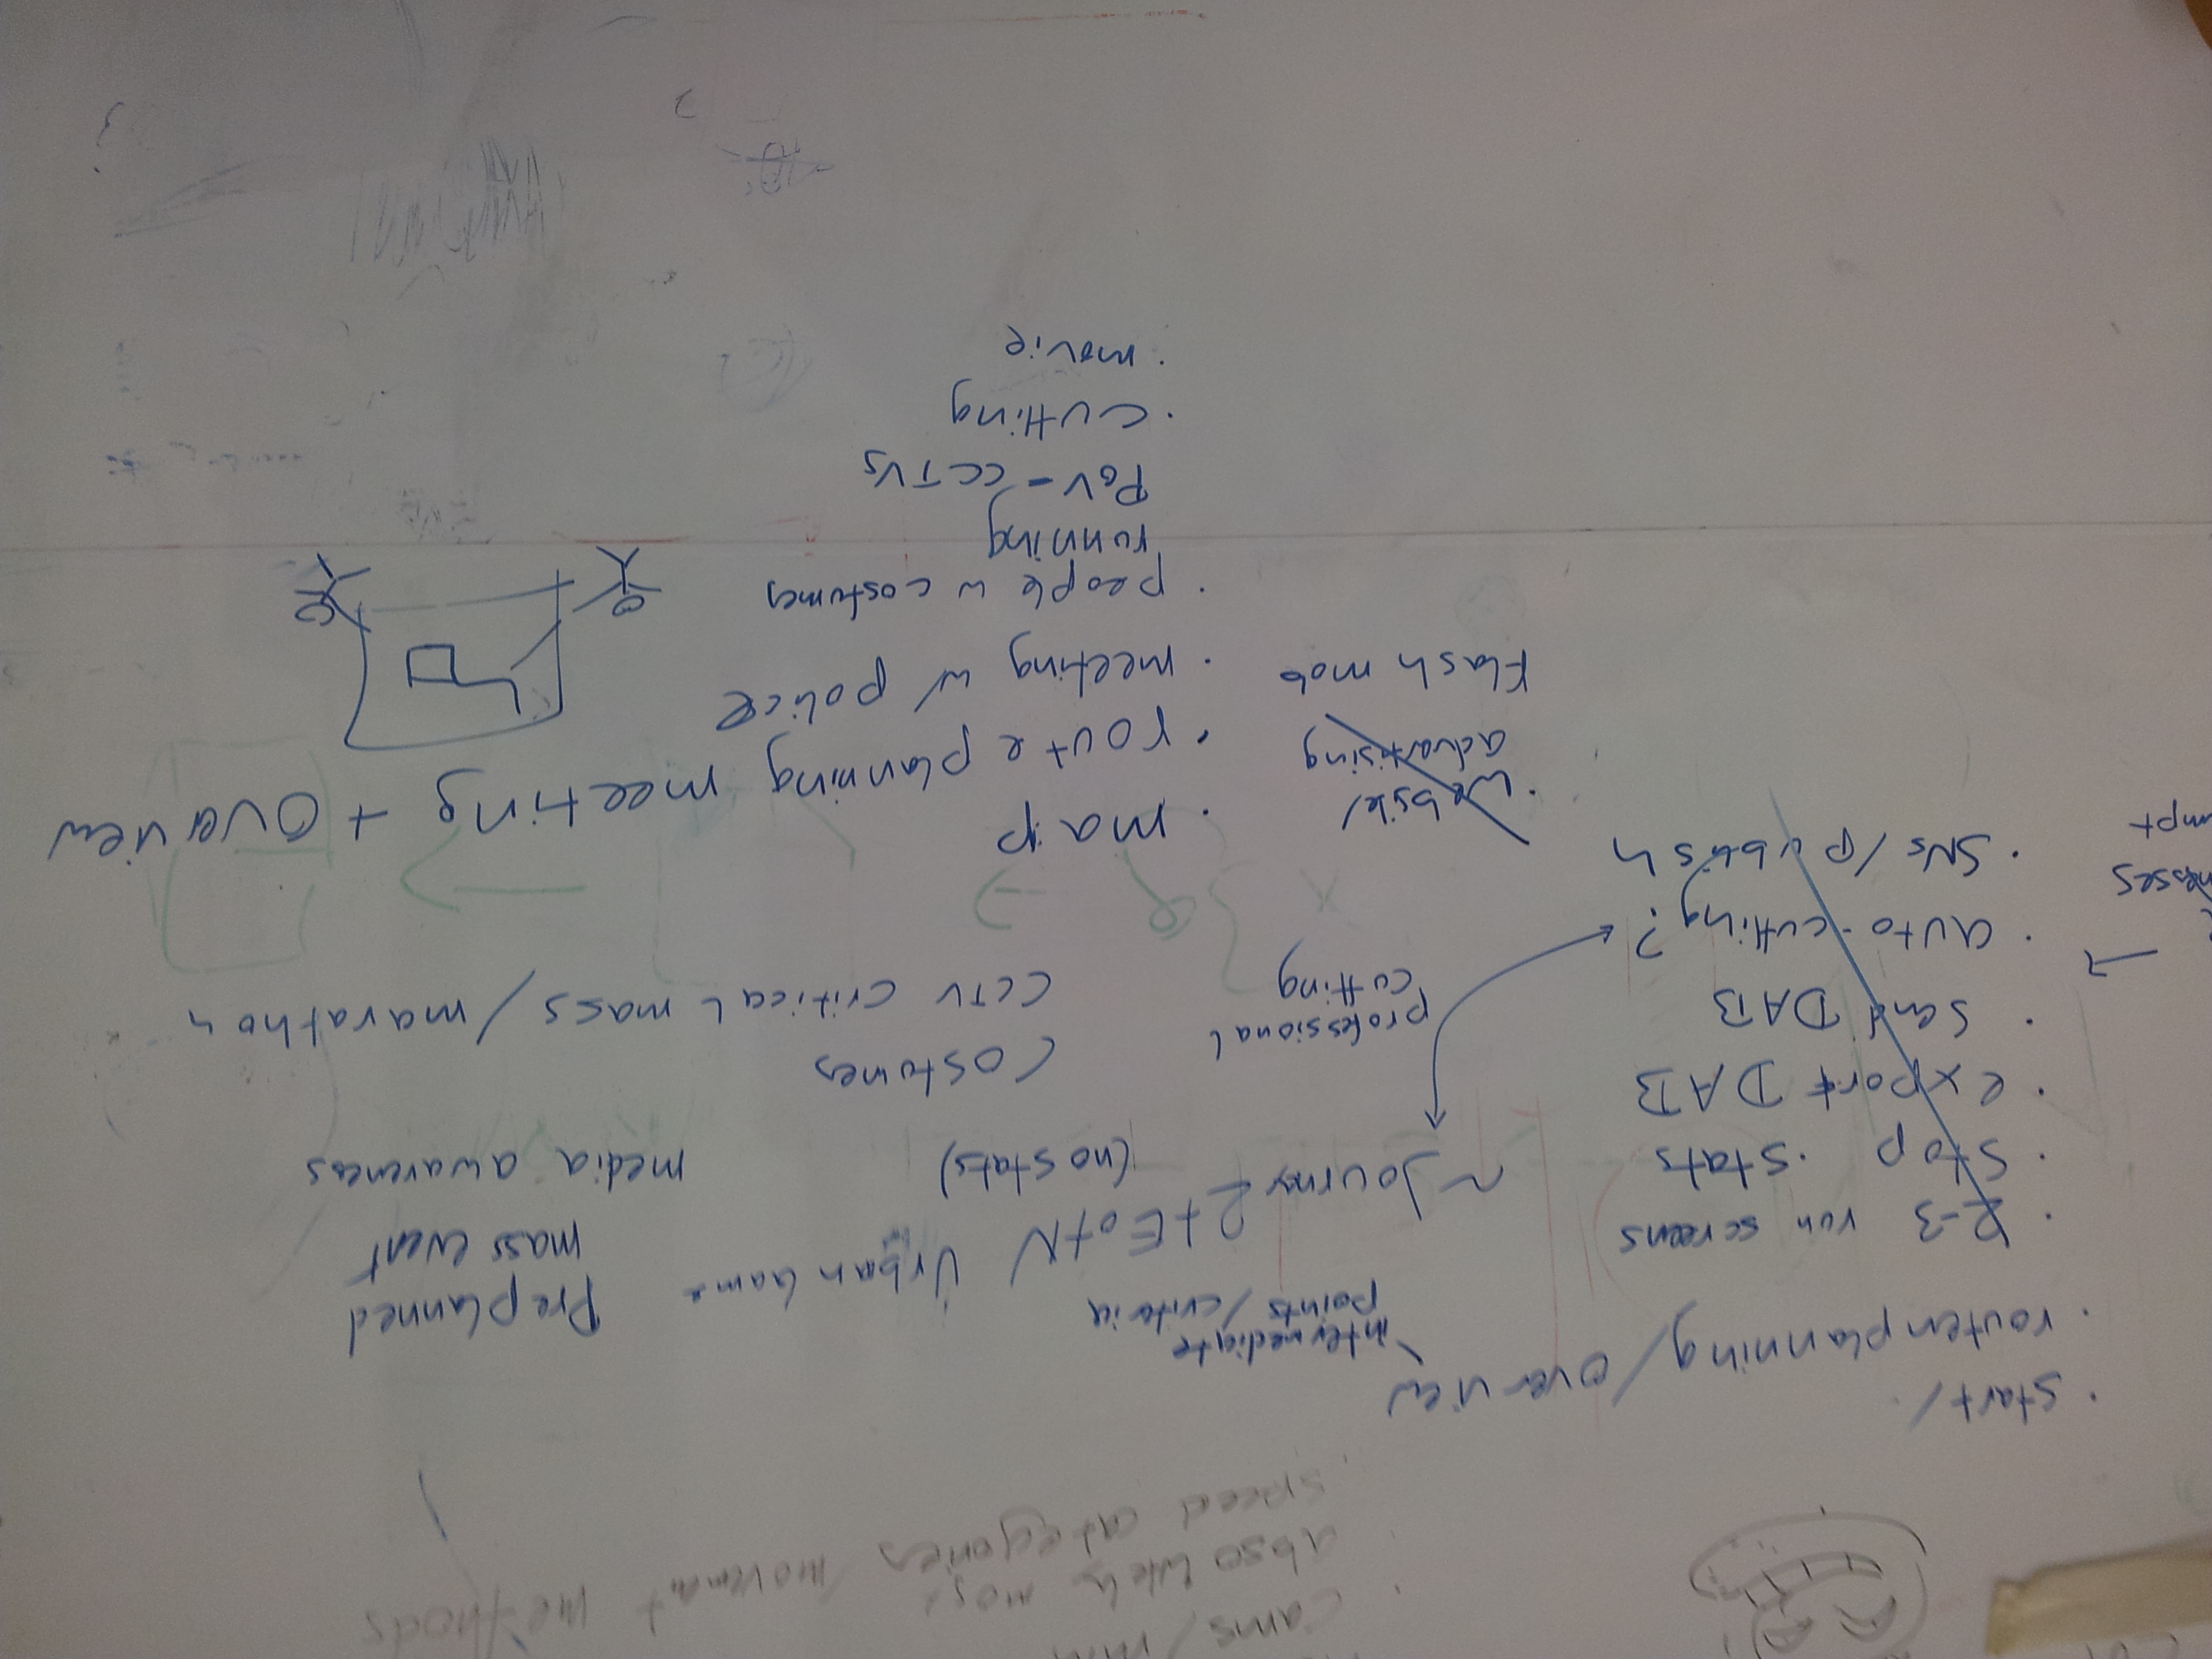 cams/min
absolutely most
speed categories / movement methods
· start/.
· routenplanning/overview
intermediate
points/criteria
· 2-3 run screens
· stop · stats
· export DAB
· send DAB
→
· auto-cutting?
· SNs/publish
mpt
~Journey 2tEotN
(no stats)
Urban Game
Preplanned
mass event
media awareness
professional
cutting
Costumes
CCTV critical mass/marathon
· website/
advertising
Flash mob
· map
· route planning meeting + overview
· meeting w/ police
· people w costumes
running
PoV - CCTVs
· cutting
· movie